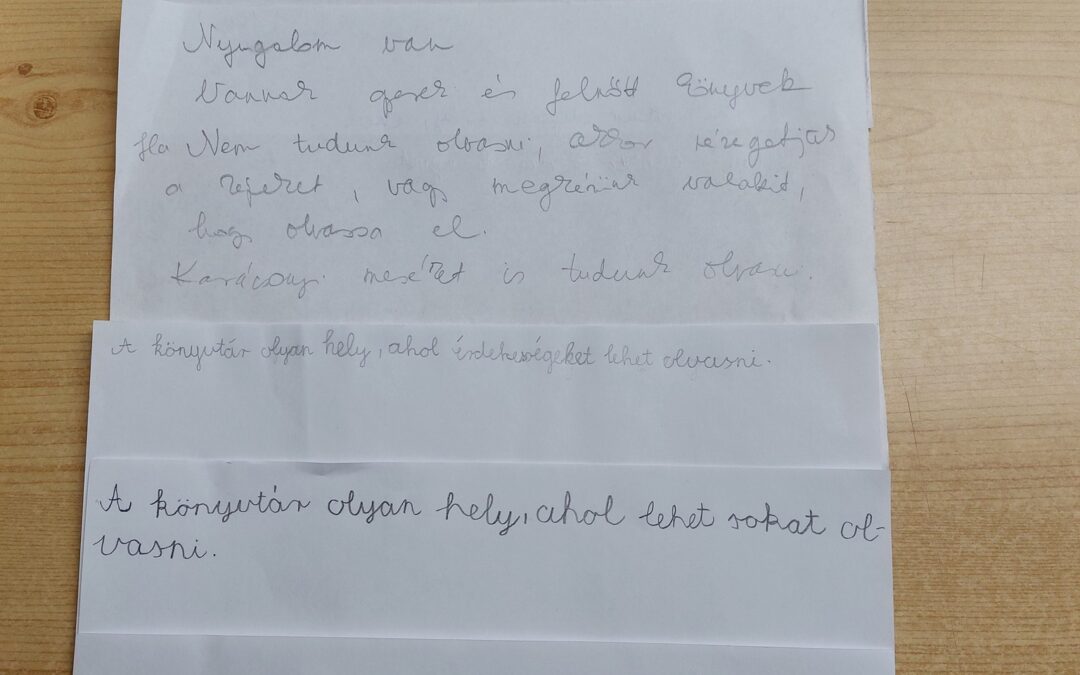 Nyugalom van
Vannak gyerek és felnőtt könyvek
Ha Nem tudunk olvasni, akkor nézegetjük
a képeket, vagy megkérünk valakit,
hogy olvassa el.
Karácsonyi meséket is tudunk olvasni.
A könyvtár olyan hely, ahol érdekességeket lehet olvasni.
A könyvtár olyan hely, ahol lehet sokat ol-
vasni.